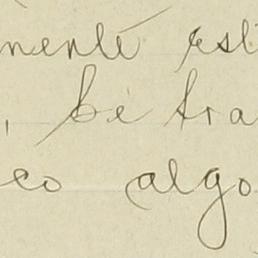 mente est
, be tra
co algo